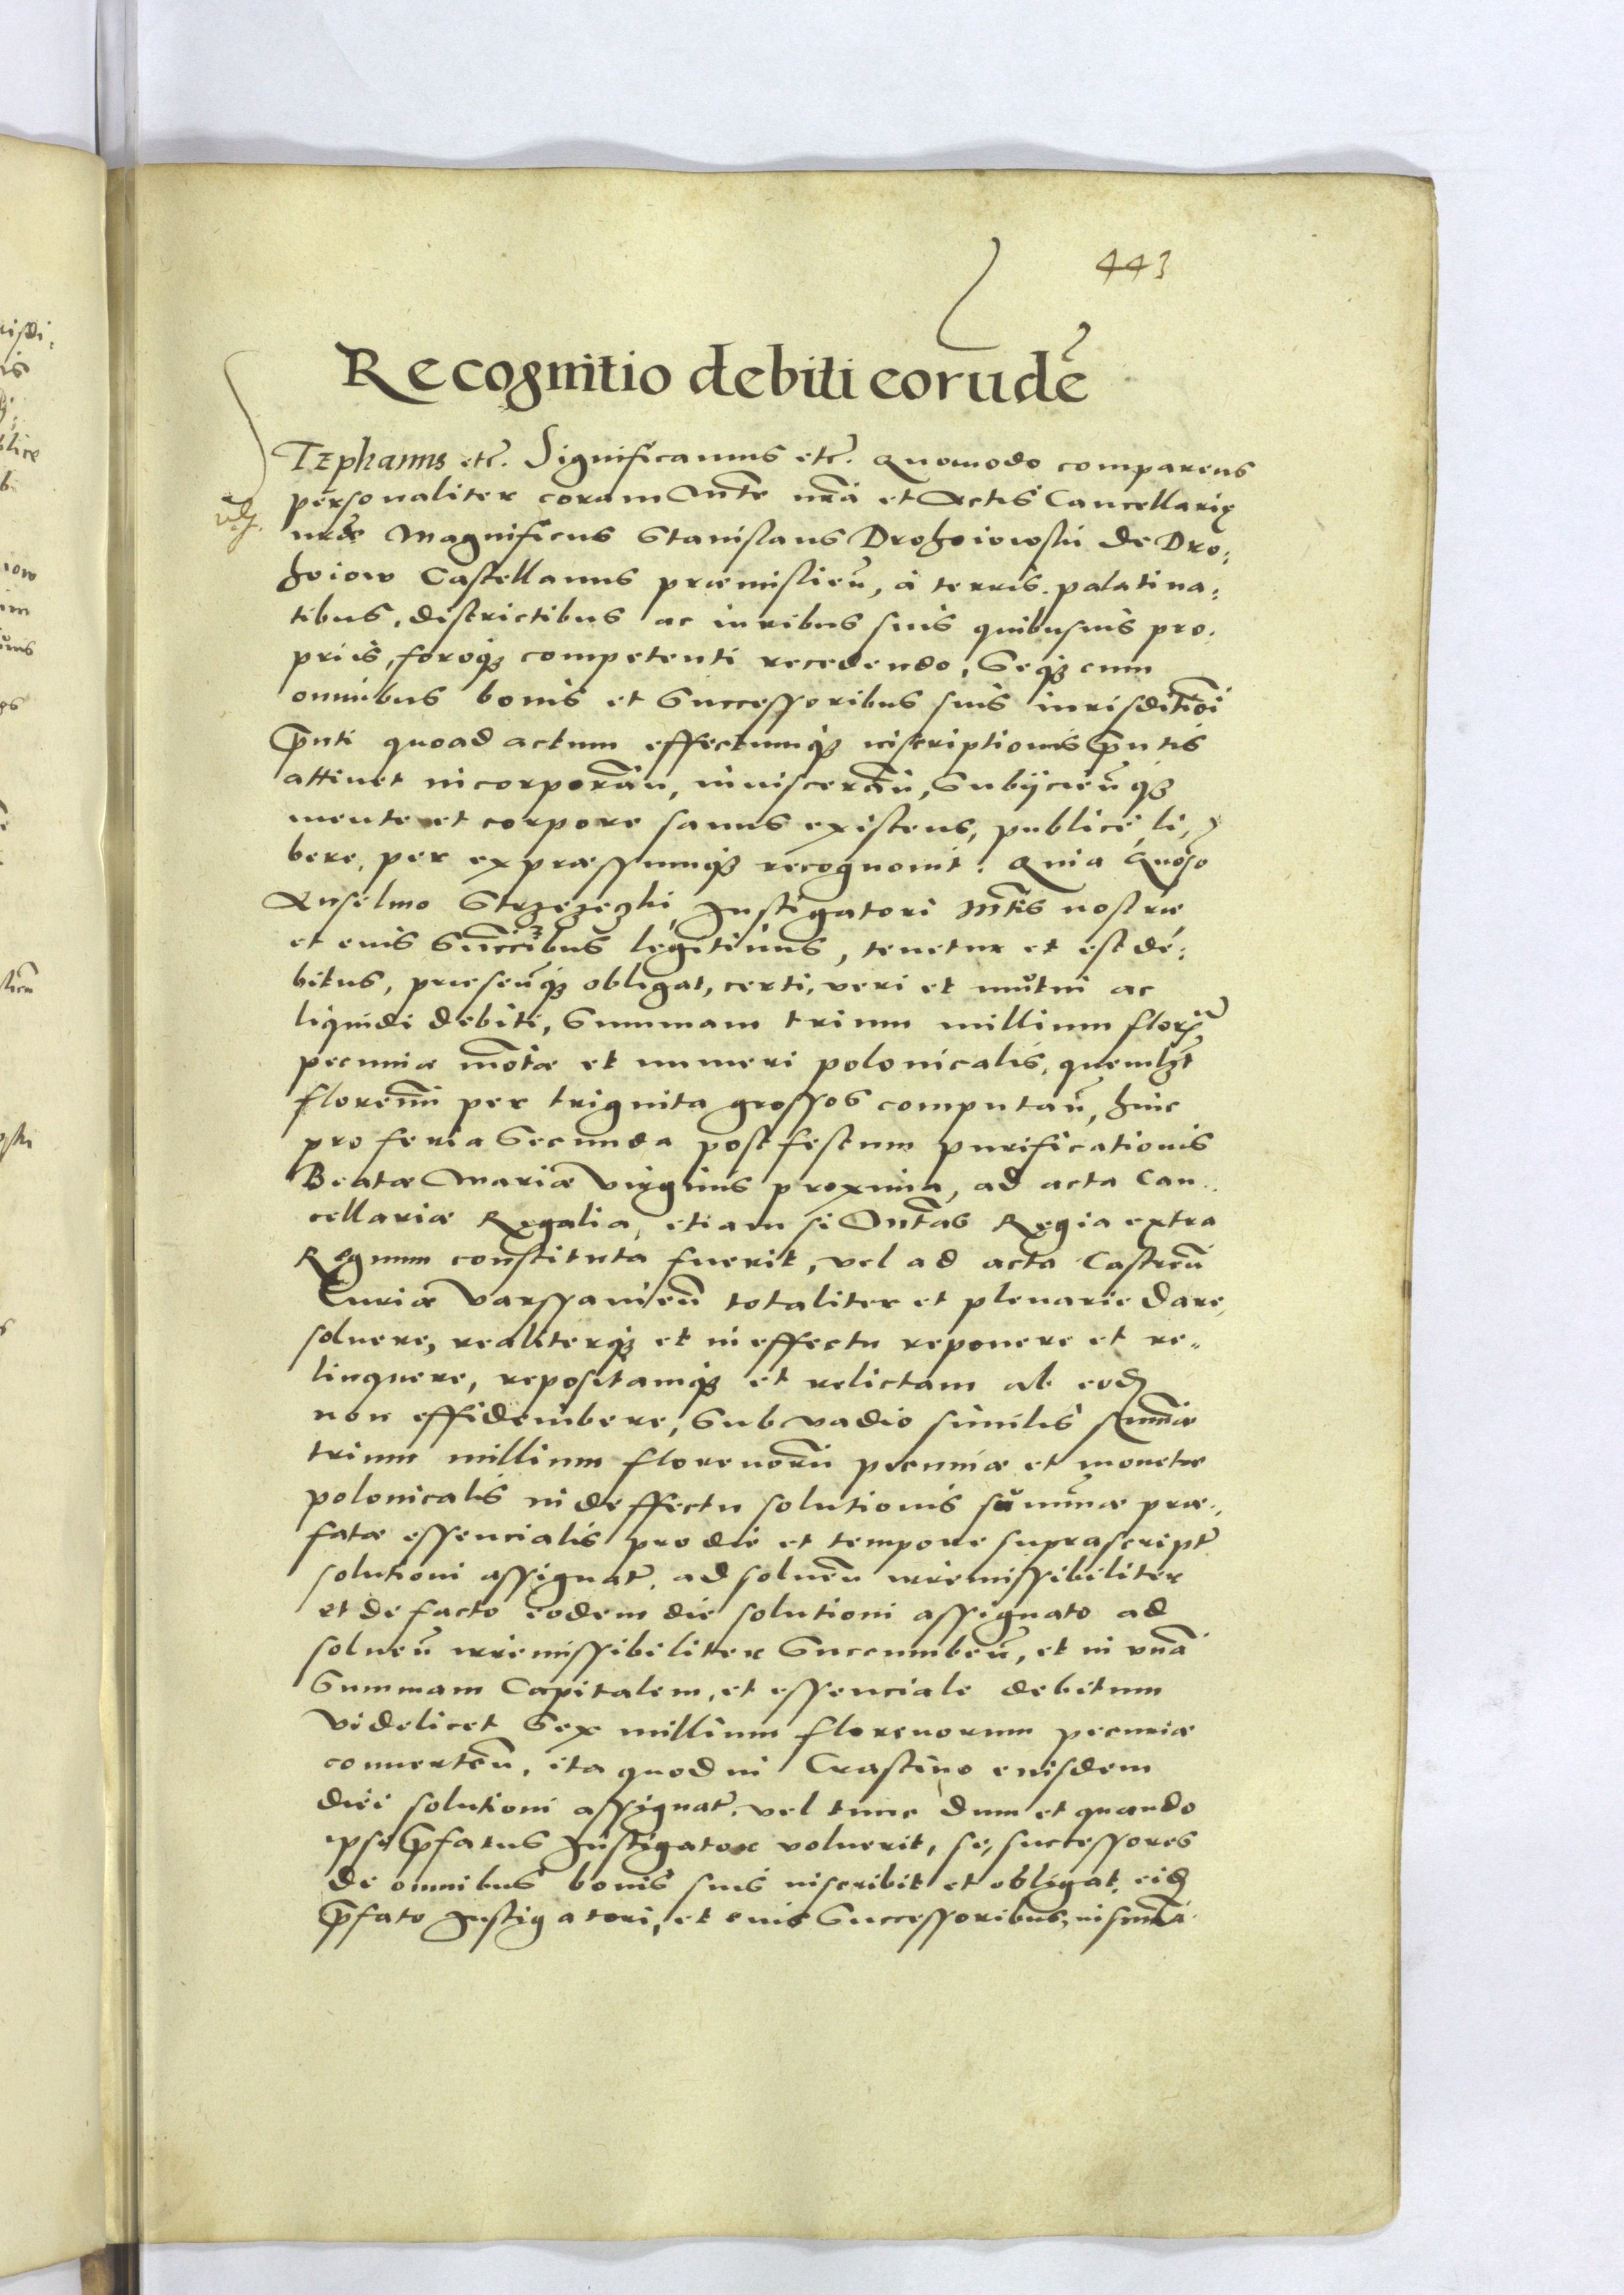 443
Recognitio debiti eorudē
Tephanus etc̃. Significamus etc̃. Quomodo comparens
personaliter coram Mte nrã et Actis Cancellariȩ
nrȩ Magnificus Stanislaus Drohoiowski de Dro:
hoiow Castellanus præmislień, à terris, palatina:
tibus, districtibus ac iuribus suis quibusuis pro:
priis, foroqȝ competenti recedendo, Seqȝ cum
omnibus bonis et Successoribus suis iurisditiōi
p̄nti quoad actum effectumqȝ inscriptionis p̄ntis
attinet incorporań, inuiscerań, Subijcieńqȝ
mente et corpore sanus existens, publicè, li,
bere, per expræssumqȝ recognouit. Quia Gñoso
Anselmo Strzezezki, Instigatori Mtis nostræ
et eius Succribus legitimis, tenetur et est de:
bitus, præseńqȝ obligat, certi, veri et mutui ac
liquidi debiti, Summam trium millium florȩ
pecuniæ mōtæ et numeri polonicalis, quemlȝt
florenū per triginta grossos computań, hinc
pro feria Secunda post festum purificationis
Beatæ Mariæ Virginis proxima, ad acta Can..
cellariæ Regalia, etiam si Mtas Regia extra
Regnum constituta fuerit, vel ad acta Castreń
Curiæ Varssauień totaliter et plenarie dare,
soluere, realiterqȝ et in effectu reponere et re..
linquere, repositamqȝ et relictam ab eod
non effidemibere, Sub vadio similis summæ
trium millium florenorū pecuniæ et monetæ
polonicalis in deffectu solutionis summæ præ..
fatæ essencialis pro die et tempore suprascript̃
solutioni assignat̃, ad solueń irremissibiliter
et de facto eodem die solutioni assignato ad
solueń irremissibiliter Succumbeń, et in vnā
Summam Capitalem, et essenciale debitum
Videlicet Sex millium florenorum pecuniæ
conuerteń, ita quod in Crastino eiusdem
diei solutioni assignat̃, vel tunc dum et quando
ipse p̄fatus Instigator voluerit, se, successores
de omnibus bonis suis inscribit et obligat, eid
p̄fato Instigatori, et eius Successoribus, in sum̄ā